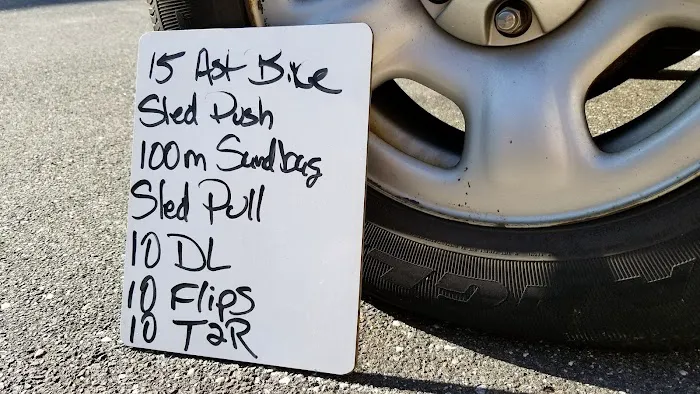 15 Ast Bike
Sled Push
100m Sandbag
Sled Pull
10 DL
10 Flips
10 T2R